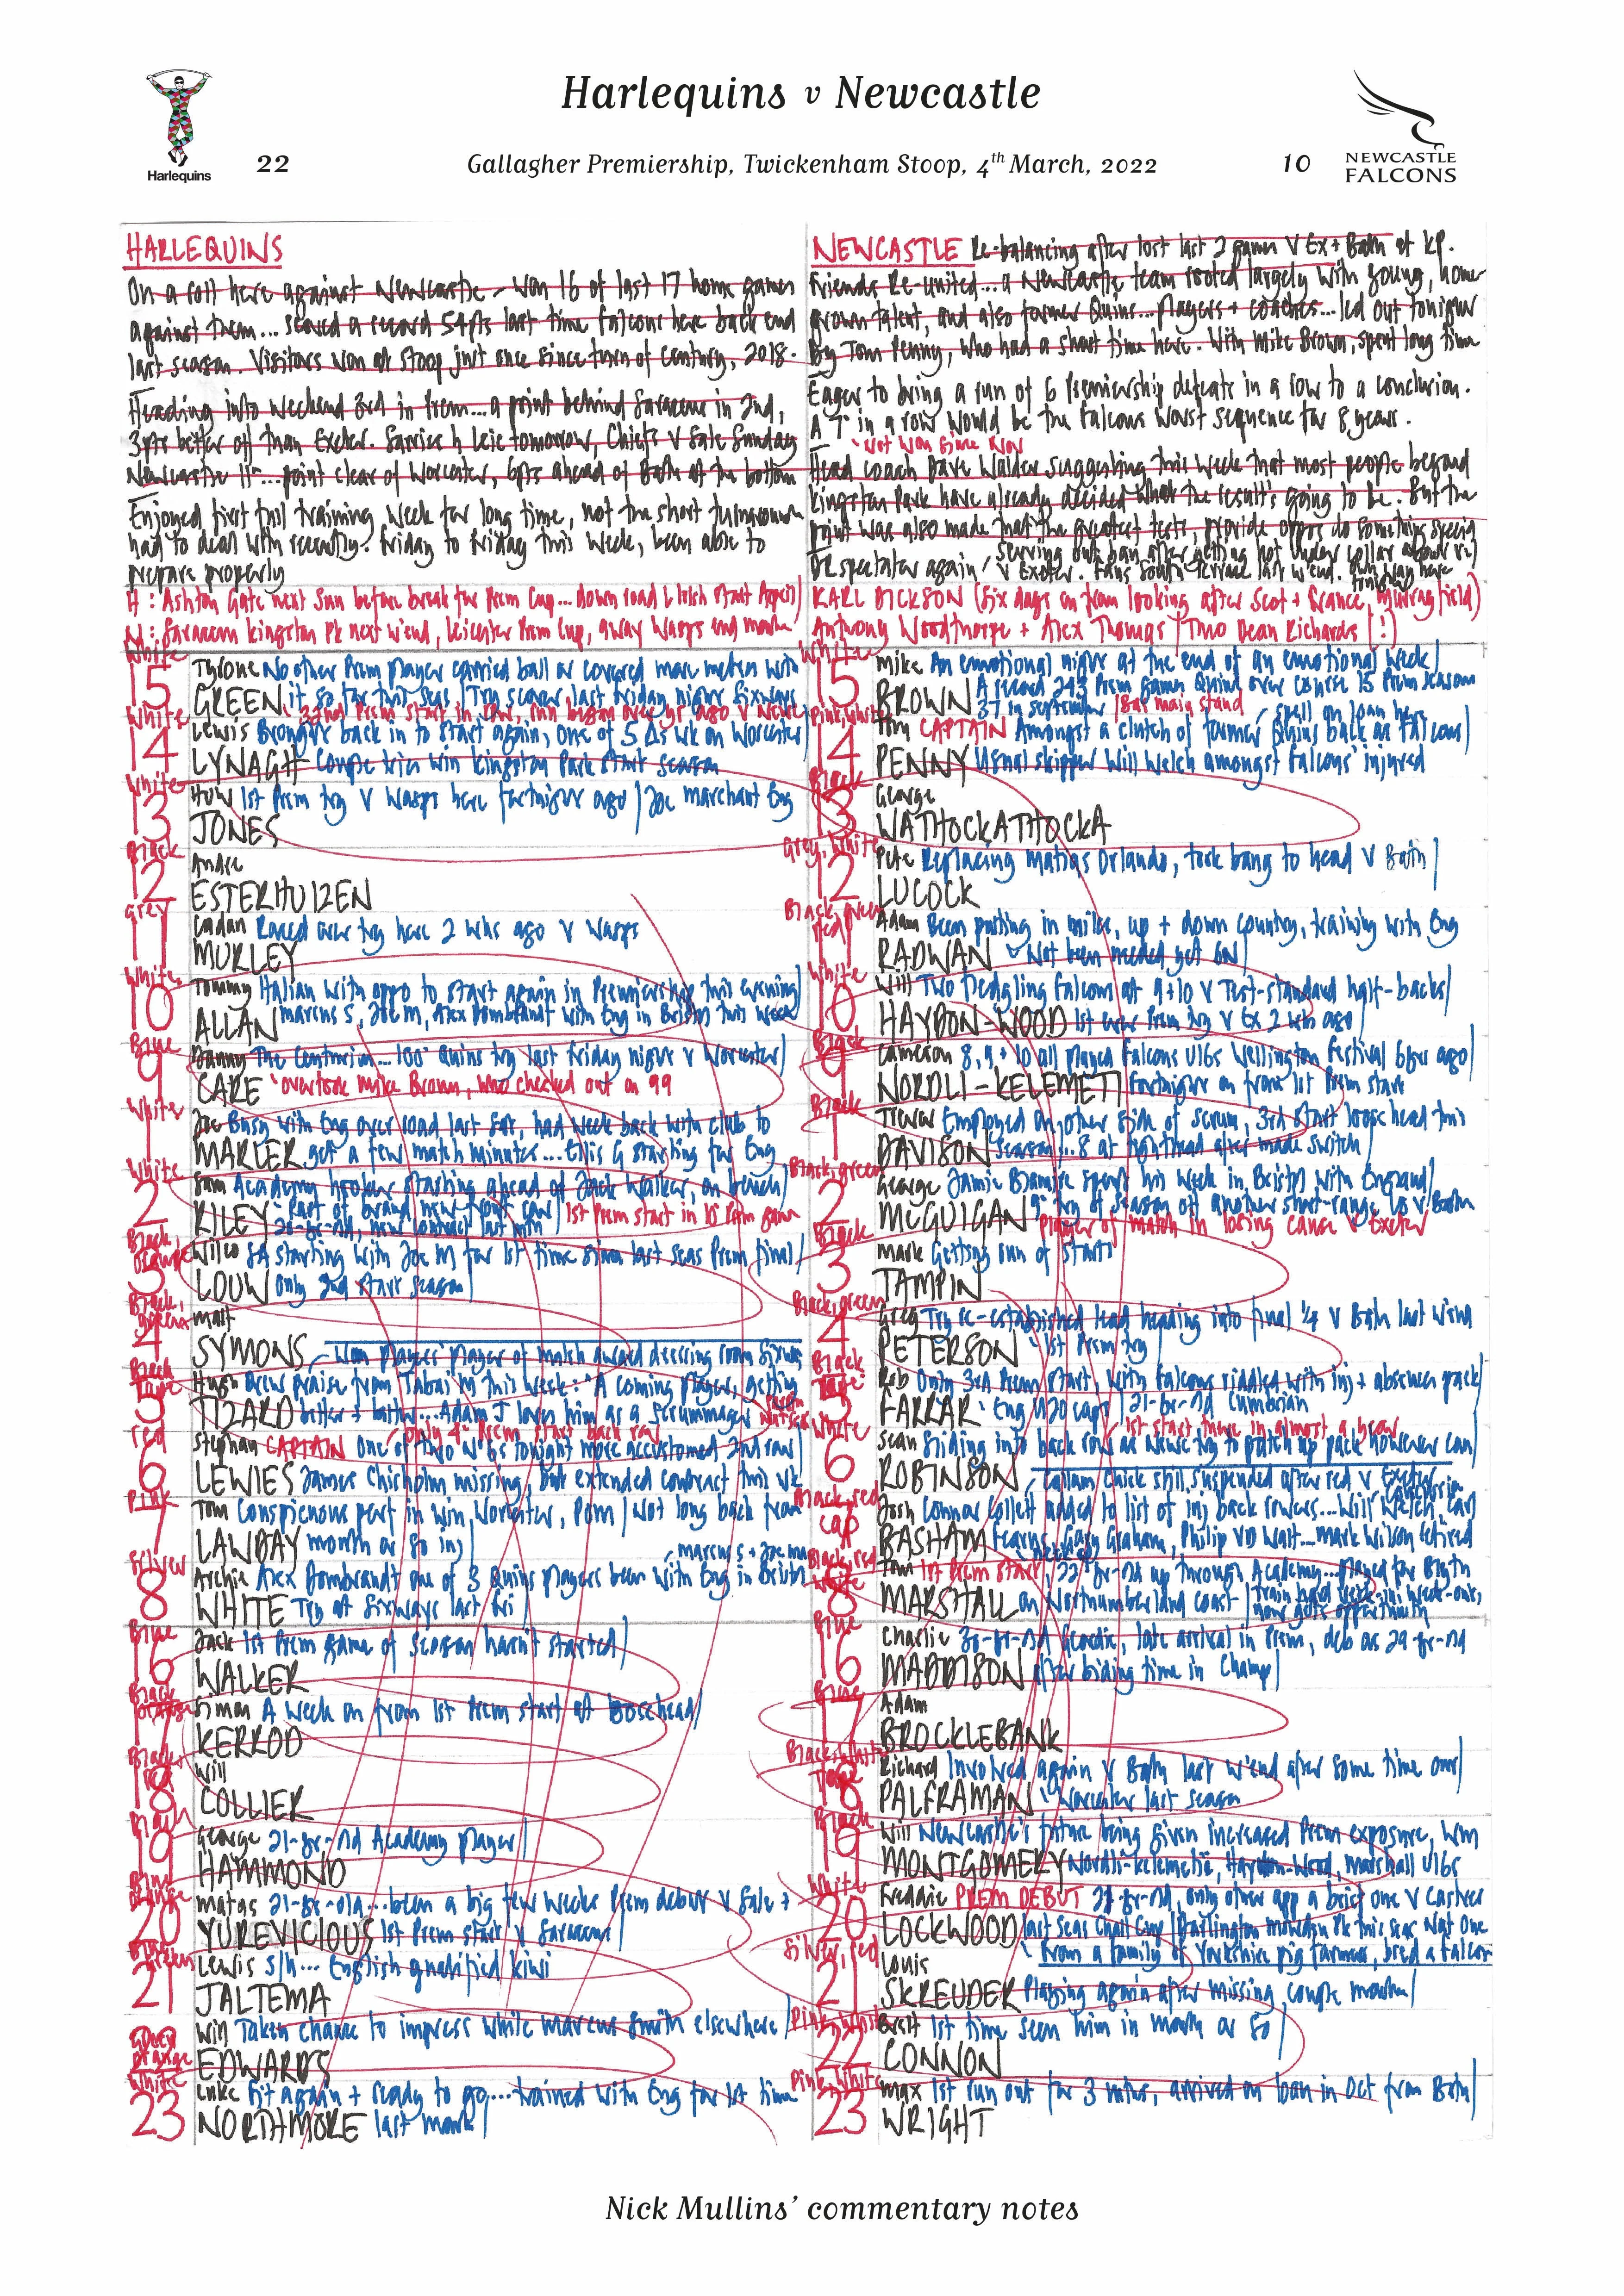 Harlequins v Newcastle
Harlequins
22
Gallagher Premiership, Twickenham Stoop, 4th March, 2022
10
NEWCASTLE
FALCONS
HARLEQUINS
On a roll here against Newcastle - Won 16 of last 17 home games
against them... scored a record 54pts last time Falcons here back end
last season. Visitors won at Stoop just once since turn of century, 2018.
Heading into weekend 3rd in Prem... a point behind Saracens in 2nd,
3pts better off than Exeter. Sarries h Leic tomorrow, Chiefs v Sale Sunday
Newcastle 11th... point clear of Worcester, 6pts ahead of Bath at the bottom
Enjoyed first full training week for long time, not the short turnaround
had to deal with recently. Friday to Friday this week, been able to
prepare properly
H: Ashton Gate next Sun before break for Prem Cup... down road L Irish start April
N: Saracens Kingston Pk next w'end, Leicester Prem Cup, away Wasps end month
NEWCASTLE Re-balancing after lost last 2 games v Ex + Bath at KP.
Friends Re-united... a Newcastle team rooted largely with young, home-
grown talent, and also former Quins... players + coaches... led out tonight
by Tom Penny, who had a short time here. With Mike Brown, spent long time
Eager to bring a run of 6 Premiership defeats in a row to a conclusion.
A 7th in a row would be the Falcons worst sequence for 8 years.
Not won since Nov
Head coach Dave Walder suggesting this week that most people beyond
Kingston Park have already decided what the result's going to be. But the
point was also made that the greatest tests, provide oppos do something special
DR spectator again
KARL DICKSON (Six days on from looking after Scot + France, Murrayfield)
Anthony Woodthorpe + Alex Thomas | Two Dean Richards (!)
White
15 Tyrone No other Prem player carried ball or covered more metres with
GREEN it so far this seas | Try scorer last Friday night Sixways
White
14 Lewis Brought back in to start again, one of 5 Δs wk on Worcester
LYNAGH Couple tries win Kingston Park start season
White
13 Huw 1st Prem try v Wasps here fortnight ago | Joe Marchant Eng
JONES
Black
12 Andre
ESTERHUIZEN
Grey
11 Cadan Raced over try here 2 wks ago v Wasps
MURLEY
White
10 Tommy Italian with oppo to start again in Premiership this evening
ALLAN Marcus S, Joe M, Alex Dombrandt with Eng in Bristol this week
Blue
9 Danny The Centurion... 100th Quins try last Friday night v Worcester
CARE overtook Mike Brown, who checked out on 99
White
1 Joe Busy with Eng over load last far, had week back with club to
MARLER get a few match minutes... this G starting for Eng
White
2 Sam Academy hooker starting ahead of Jack Walker, on bench
RILEY Part of brand new front row | 1st Prem start in 15 Prem game
Black
3 Wilco SA starting with Joe M for 1st time since last seas Prem final
LOUW only 2nd start season
Black,
4 Matt
SYMONS Won players player of match award dressing room Sixways
Black
Tape
5 Hugh Drew praise from Tabai M this week: "A coming player, getting
TIZARD better + better... Adam J loves him as a scrummager
only 4th Prem start back row
red
6 Stephan CAPTAIN One of two N°6s tonight more accustomed 2nd row
LEWIES James Chisholm missing, but extended contract this wk
Pink
7 Tom Conspicuous part in win, Worcester, Pom | Not long back from
LAWDAY month or so inj
Silver
8 Archie Alex Dombrandt one of 3 Quins players been with Eng in Bristol
Marcus S + Joe Ma
WHITE Try at Sixways last Fri
Blue
16 Jack 1st Prem game of season hasn't started
WALKER
Black
17 Simon A week on from 1st Prem start at loosehead
KERROD
Black
18 Will
COLLIER
19 George 21-yr-old Academy player
HAMMOND
Blue
orange
20 Matas 21-yr-old... been a big few weeks Prem debut v Sale +
YUREVICIOUS 1st Prem start v Saracens
green
21 Lewis s/h... English qualified Kiwi
JALTEMA
Green
orange
22 Will Taken chance to impress while Marcus Smith elsewhere
EDWARDS
White
23 Luke Fit again + ready to go... trained with Eng for 1st time
NORTHMORE last month
White
15 Mike An emotional night at the end of an emotional week
BROWN A record 243 Prem games Quins over course 15 Prem season
37 in September | main stand
Pink, White
14 Tom CAPTAIN Amongst a clutch of former Quins back as Falcons
spell on loan here
PENNY Usual skipper Will Welch amongst Falcons' injured
Black
13 George
WATHOCKATHOCKA
Grey, White
12 Pete Replacing Matias Orlando, took bang to head v Bath
LUCOCK
Black, green
red
11 Adam Been putting in miles, up + down country, training with Eng
RADWAN Not been needed yet 6N
White
10 Will Two fledgling Falcons at 9+10 v Test-standard half-backs
HAYDON-WOOD 1st ever Prem try v Ex 2 wks ago
Black
9 Cameron 8, 9 + 10 all played Falcons U16s Wellington Festival 6yrs ago
NORDLI-KELEMETI Fortnight on from 1st Prem start
Black
1 Trevor Employed on other side of scrum, 3rd start loose head this
DAVISON season... 8 at tighthead after made switch
Black, green
2 George Jamie Blamire spent his week in Bristol with England
MCGUIGAN 9th try of season off another short-range LO v Bath
Player of match in losing cause v Exeter
Black
3 Mark Getting run of starts
TAMPIN
Black, green
4 Greg Try re-established lead heading into final ¼ v Bath last w'end
PETERSON 1st Prem try
Black
Tape
5 Rob Only 3rd Prem start, with Falcons riddled with inj + absences pack
FARRAR Eng U20 caps | 21-yr-old Cumbrian
1st start there in almost a year
White
6 Sean Sliding into back row as Newc try to patch up pack however can
ROBINSON Callum Chick still suspended after red v Exeter
Black, red
cap
7 Josh Connor Collett added to list of inj back rowers... Will Welch, Carl
BASHAM Fearns, Gary Graham, Philip VD Walt... Mark Wilson retired
Black, red
White
8 Tom 1st Prem start, 22-yr-old up through Academy... played for Blyth
MARSHALL on Northumberland coast | train hard
now gets opportunity
Blue
16 Charlie 38-yr-old Geordie, late arrival in Prem, deb as 29-yr-old
MADDISON after biding time in Champ
Blue
17 Adam
BROCKLEBANK
Black, White
Tape
18 Richard Involved again v Bath last w'end after some time out
PALFRAMAN Worcester last season
Black
19 Will Newcastle's future being given increased Prem exposure, Wm
MONTGOMERY Nordli-Kelemetie, Haydon-Wood, Marshall U16s
White
20 Freddie PREM DEBUT 21-yr-old, only other app a brief one v Castres
LOCKWOOD last seas Chall Cup | Darlington Mowden Pk this seas Nat One
from a family of Yorkshire pig farmers, bred a Falcon
Silver, red
21 Louis
SKREUDER Playing again after missing couple months
Pink, White
22 Brett 1st time seen him in month or so
CONNON
Pink, White
23 Max 1st run out for 3 mths, arrived on loan in Oct from Bath
WRIGHT
Nick Mullins' commentary notes